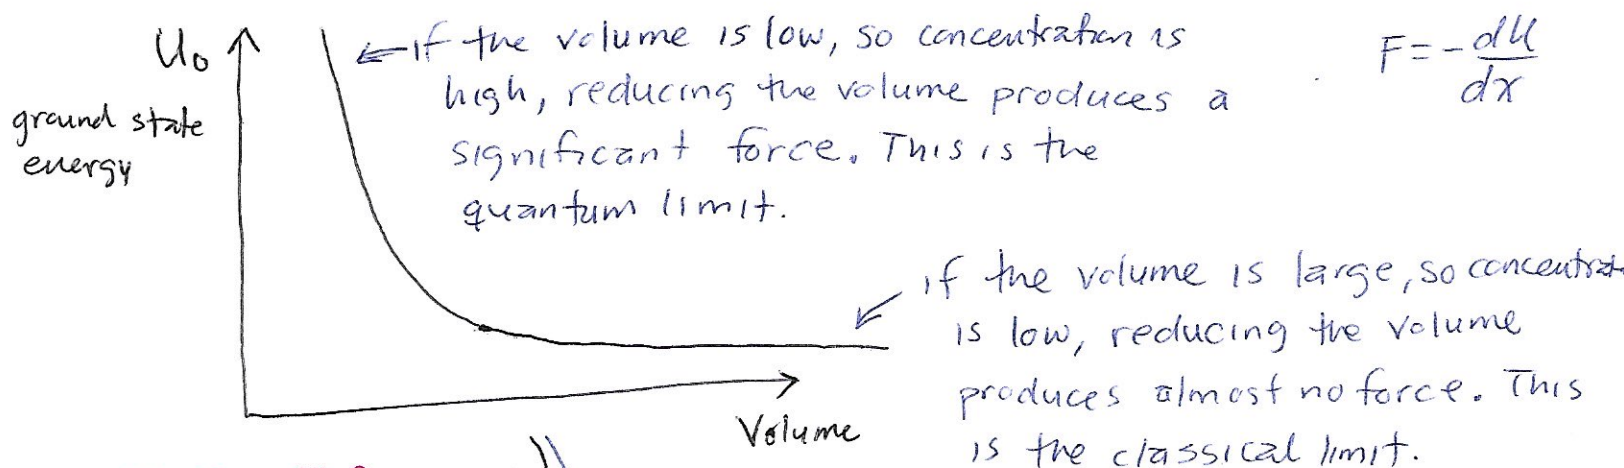 U₀
ground state
energy
if the volume is low, so concentration is
high, reducing the volume produces a
significant force. This is the
quantum limit.
F = - dU/dx
if the volume is large, so concentrat
is low, reducing the volume
produces almost no force. This
is the classical limit.
Volume